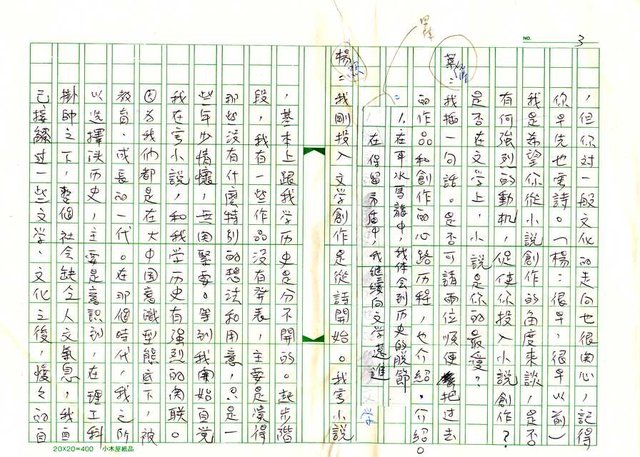 NO. 3
，但你對一般文化的走向也很關心，記得
你早先也寫詩。（楊：很早，很早以前）
我是希望你從小說創作的角度來談，是否
有何強烈的動機，促使你投入小說創作？
是否在文學上，小說是你的最愛？
葉：我插一句話。是否可請兩位順便把過去
的作品和創作的心路歷程，也介紹介紹。
1. 在車水馬龍中，我体会到历史的脫節
在保留中，我繼續向文学邁進
楊：我剛投入文学創作是從詩開始。我寫小說
，基本上跟我学历史是分不開的。起步階
段，我有一些作品沒有發表，主要是覺得
那些沒有什麼特别的想法和用意，只是一
些年少情懷，無関緊要。等到我開始自覺
我在寫小說，和我学历史有強烈的関联。
因為我們都是在大中国意識型態底下，被
教育、成長的一代。在那個時代，我之所
以选擇读历史，主要是意識到，在理工科
掛帥之下，整個社会缺乏人文氣息，我自
己接觸过一些文学、文化之後，慢々的自
20X20=400 小木屋紙品